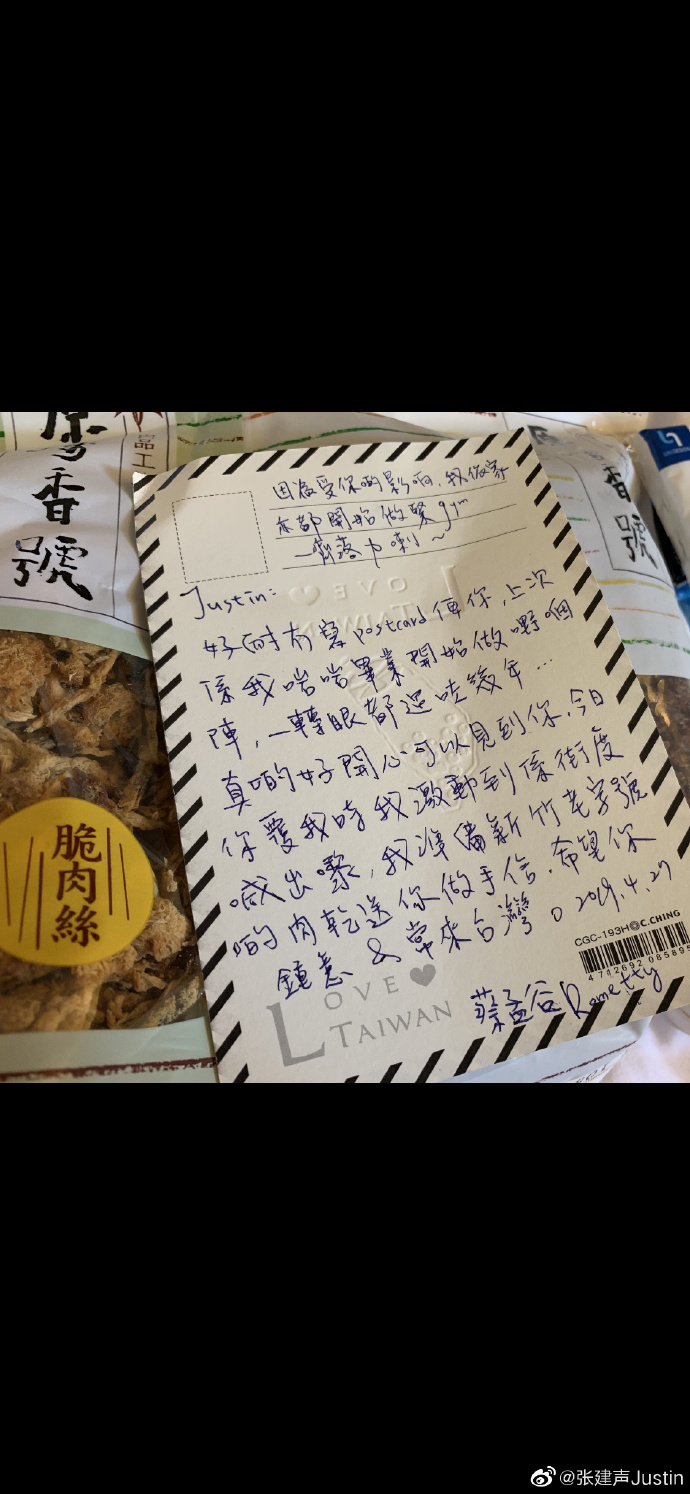 香
號
品
香
號
脆肉絲
因為受你啲影响，我依家
亦都開始做緊gym
一齊落力喇～
Justin：
好耐冇寫postcard俾你，上次
係我啱啱畢業開始做嘢嗰
陣，一轉眼都過咗幾年…
真的好開心可以見到你，今日
你覆我時我激動到係街度
喊出嚟，我準備新竹老字號
啲肉乾送你做手信，希望你
鍾意 & 常來台灣。2019.4.27
蔡孟谷 Rometty
CGC-193H C.CHING
4712692085895
LOVE
TAIWAN
LOVE
TAIWAN
@张建声Justin